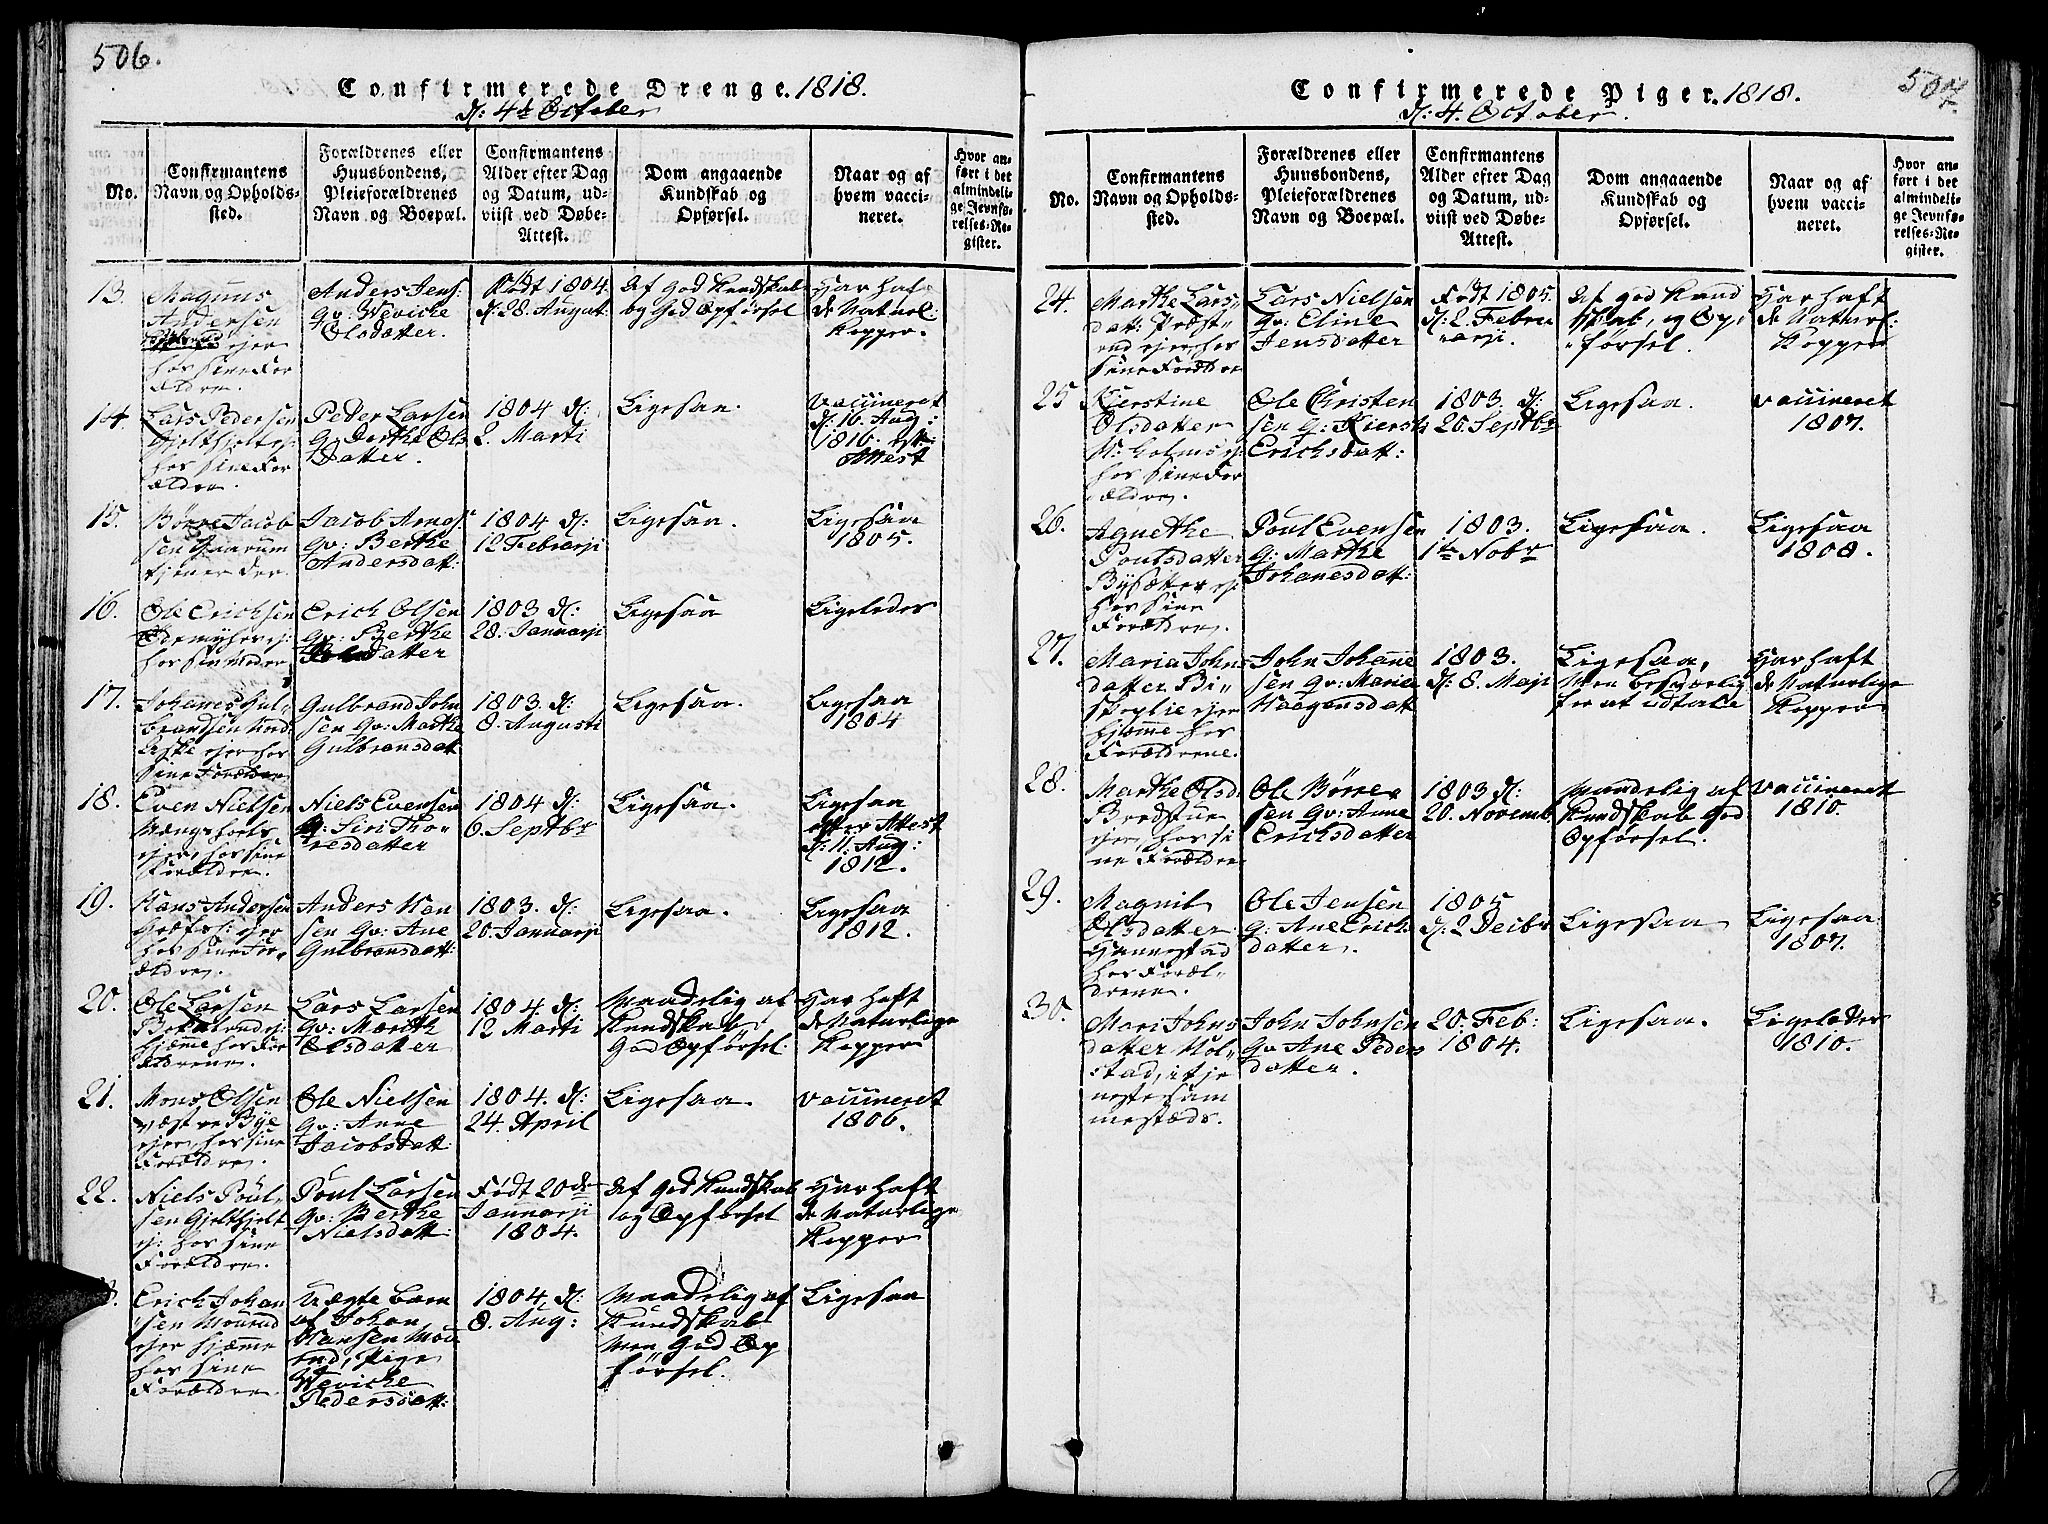 506.
Confirmerede Drenge. 1818.
d: 4de October
No.
Confirmantens
Navn og Opholds-
sted.
Forældrenes eller
Huusbondens,
Pleieforældrenes
Navn og Boepæl.
Confirmantens
Alder efter Dag
og Datum, ud-
viist ved Døbe-
Attest.
Dom angaaende
Kundskab og
Opførsel.
Naar og af
hvem vacci-
neret.
Hvor an-
ført i det
almindeli-
ge Jevnfø-
relses-Re-
gister.
13.
Magnus
Andersen
ejer
hos sine For
ældre.
Anders Jens:
Qv: Wevicke
Olsdatter.
Født 1804.
d: 28. August
Af god Kundskab
og God Opførsel
Har haft
de Naturl:
Kopper.
14.
Lars Pedersen
hos sine For
ældre.
Peder Larsen
Q. Dorthe Ols
Datter.
1804 d:
2. Marti
Ligesaa.
vaccineret
d: 16. Aug:
1816. 
Attest
15.
Børre Jacob
sen Gaarum
tjener der.
Jacob Arnes:
Qv: Berthe
Andersdatt:
1804 d:
12 Februarji
Ligesaa.
Ligesaa
1805.
16.
Ole Erichsen
hos sin Moder
Erich Olsen
Qv: Berthe
datter
1803 d:
28. Januarji
Ligesaa
Ligeledes
17.
Johannes Gul-
brandsen Lund
ejer hos
sine Forældre
Gulbrand John
sen Qv: Marthe
Gulbransdatt
1803 d:
8. Augusti
Ligesaa.
Ligesaa
1804
18.
Even Nielsen
ejer, hos sine
Forældre.
Niels Evensen
Q: Siri Tho-
resdatter
1804 d:
6. Septbr
Ligesaa.
Ligesaa
efter Attest
d: 11. Aug:
1812.
19.
Hans Andersen
ejer
hos sine For-
ældre.
Anders Han
sen Qv: Ane
Gulbransdatt:
1803. d:
20. Januarji
Ligesaa.
Ligesaa
1812.
20.
Ole Larsen
hjæmme hos For
ældrene.
Lars Larsen
Qv: Marith
Olsdatter
1804. d:
12 Marti
Maadelig af
Kundskab
God Opførsel:
Har haft
de Naturlige
Kopper
21.
Mons Olsen
Væstre Bye
ejer, hos sine
Forældre.
Ole Nielsen
Qv: Anne
Jacobsdatt:
1804. d:
24. April
Ligesaa.
vaccineret
1806.
22.
Niels Poul-
sen Gjelthjelt
ej: hos sine
Forældre.
Poul Larsen
Qv: Berthe
Nielsdatt:
Født 20de
Januarji
1804.
Af god Kundskab
og Opførsel
Har haft
de Naturlige
Kopper
Erich Johan
sen Mourud
ejer hjæmme
hos sine
Forældre
Uægte barn
af Johan
Hansen Mou
rud, Pige
Wevicke
Pedersdatt:
1804 d:
8. Aug:
Maadelig af
Kundskab
Men God Op
førsel.
Ligesaa
507
Confirmerede Piger. 1818.
d: 4. October.
No.
Confirmantens
Navn og Opholds-
sted.
Forældrenes eller
Huusbondens,
Pleieforældrenes
Navn og Boepæl.
Confirmantens
Alder efter Dag
og Datum, ud-
viist ved Døbe-
Attest.
Dom angaaende
Kundskab og
Opførsel.
Naar og af
hvem vacci-
neret.
Hvor an-
ført i det
almindeli-
ge Jevnfø-
relses-Re-
gister.
24.
Marthe Lars-
datt: Præst-
rud ejer hos
sine Forældre
Lars Nielsen
Qv: Eline
Jensdatter
Født 1805.
d: 2. Febru
arji.
Af god Kund
skab, og Op-
førsel.
Har haft
de Naturl:
Kopper
25
Kierstine
Olsdatter
hos sine For
ældre.
Ole Christen
sen Q: Kiersti
Erichsdatt:
1803. d:
20. Septbr
Ligesaa.
vaccineret
1807.
26.
Agnethe
Poulsdatter
Bysæter ej:
hos sine
Forældre.
Poul Evensen
Q: Marthe
Johanesdatt:
1803.
1te Nobr
Ligesaa.
Ligesaa
1808.
27.
Maria Johns
datter Bi-
skoplie ejer
hjæmme hos
Forældrene.
John Johane
sen Qv: Marie
Haagensdatt
1803.
d: 8. Maji
Ligesaa,
Men besværlig
for at udtale
Har haft
de Naturlige
Kopper
28.
Marthe Olsd.
Bredstue
ejer, hos si
ne Forældre
Ole Børre
sen Qv: Anne
Erichsdatter
1803 d:
20. Novemb.
Maadelig af
Kundskab God
Opførsel.
vaccineret
1810.
29.
Magnil
Olsdatter
Hannestad
hos Foræl-
drene.
Ole Jensen
Q: Ane Erich
datter.
1805
d: 2 Decbr
Ligesaa
Ligesaa
1807.
30.
Mari Johns
datter Hol-
stad, i tje
neste sam
mesteds.
John Johnsen
Qv Ane Peders
datter.
20. Feb:
1804.
Ligesaa.
Ligeledes
1810.